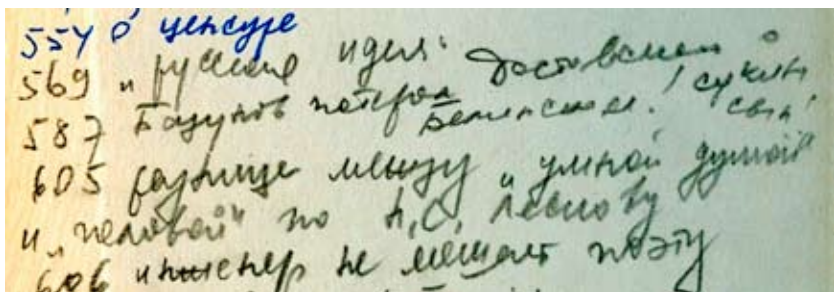 554 о цензуре
569 „русская идея" Достоевский о
587 Базунов потерял Белинского! сукин сын!
605 разница между „умной думой"
и „головой" по Н.С. Лескову
606 инженер не мешает поэту